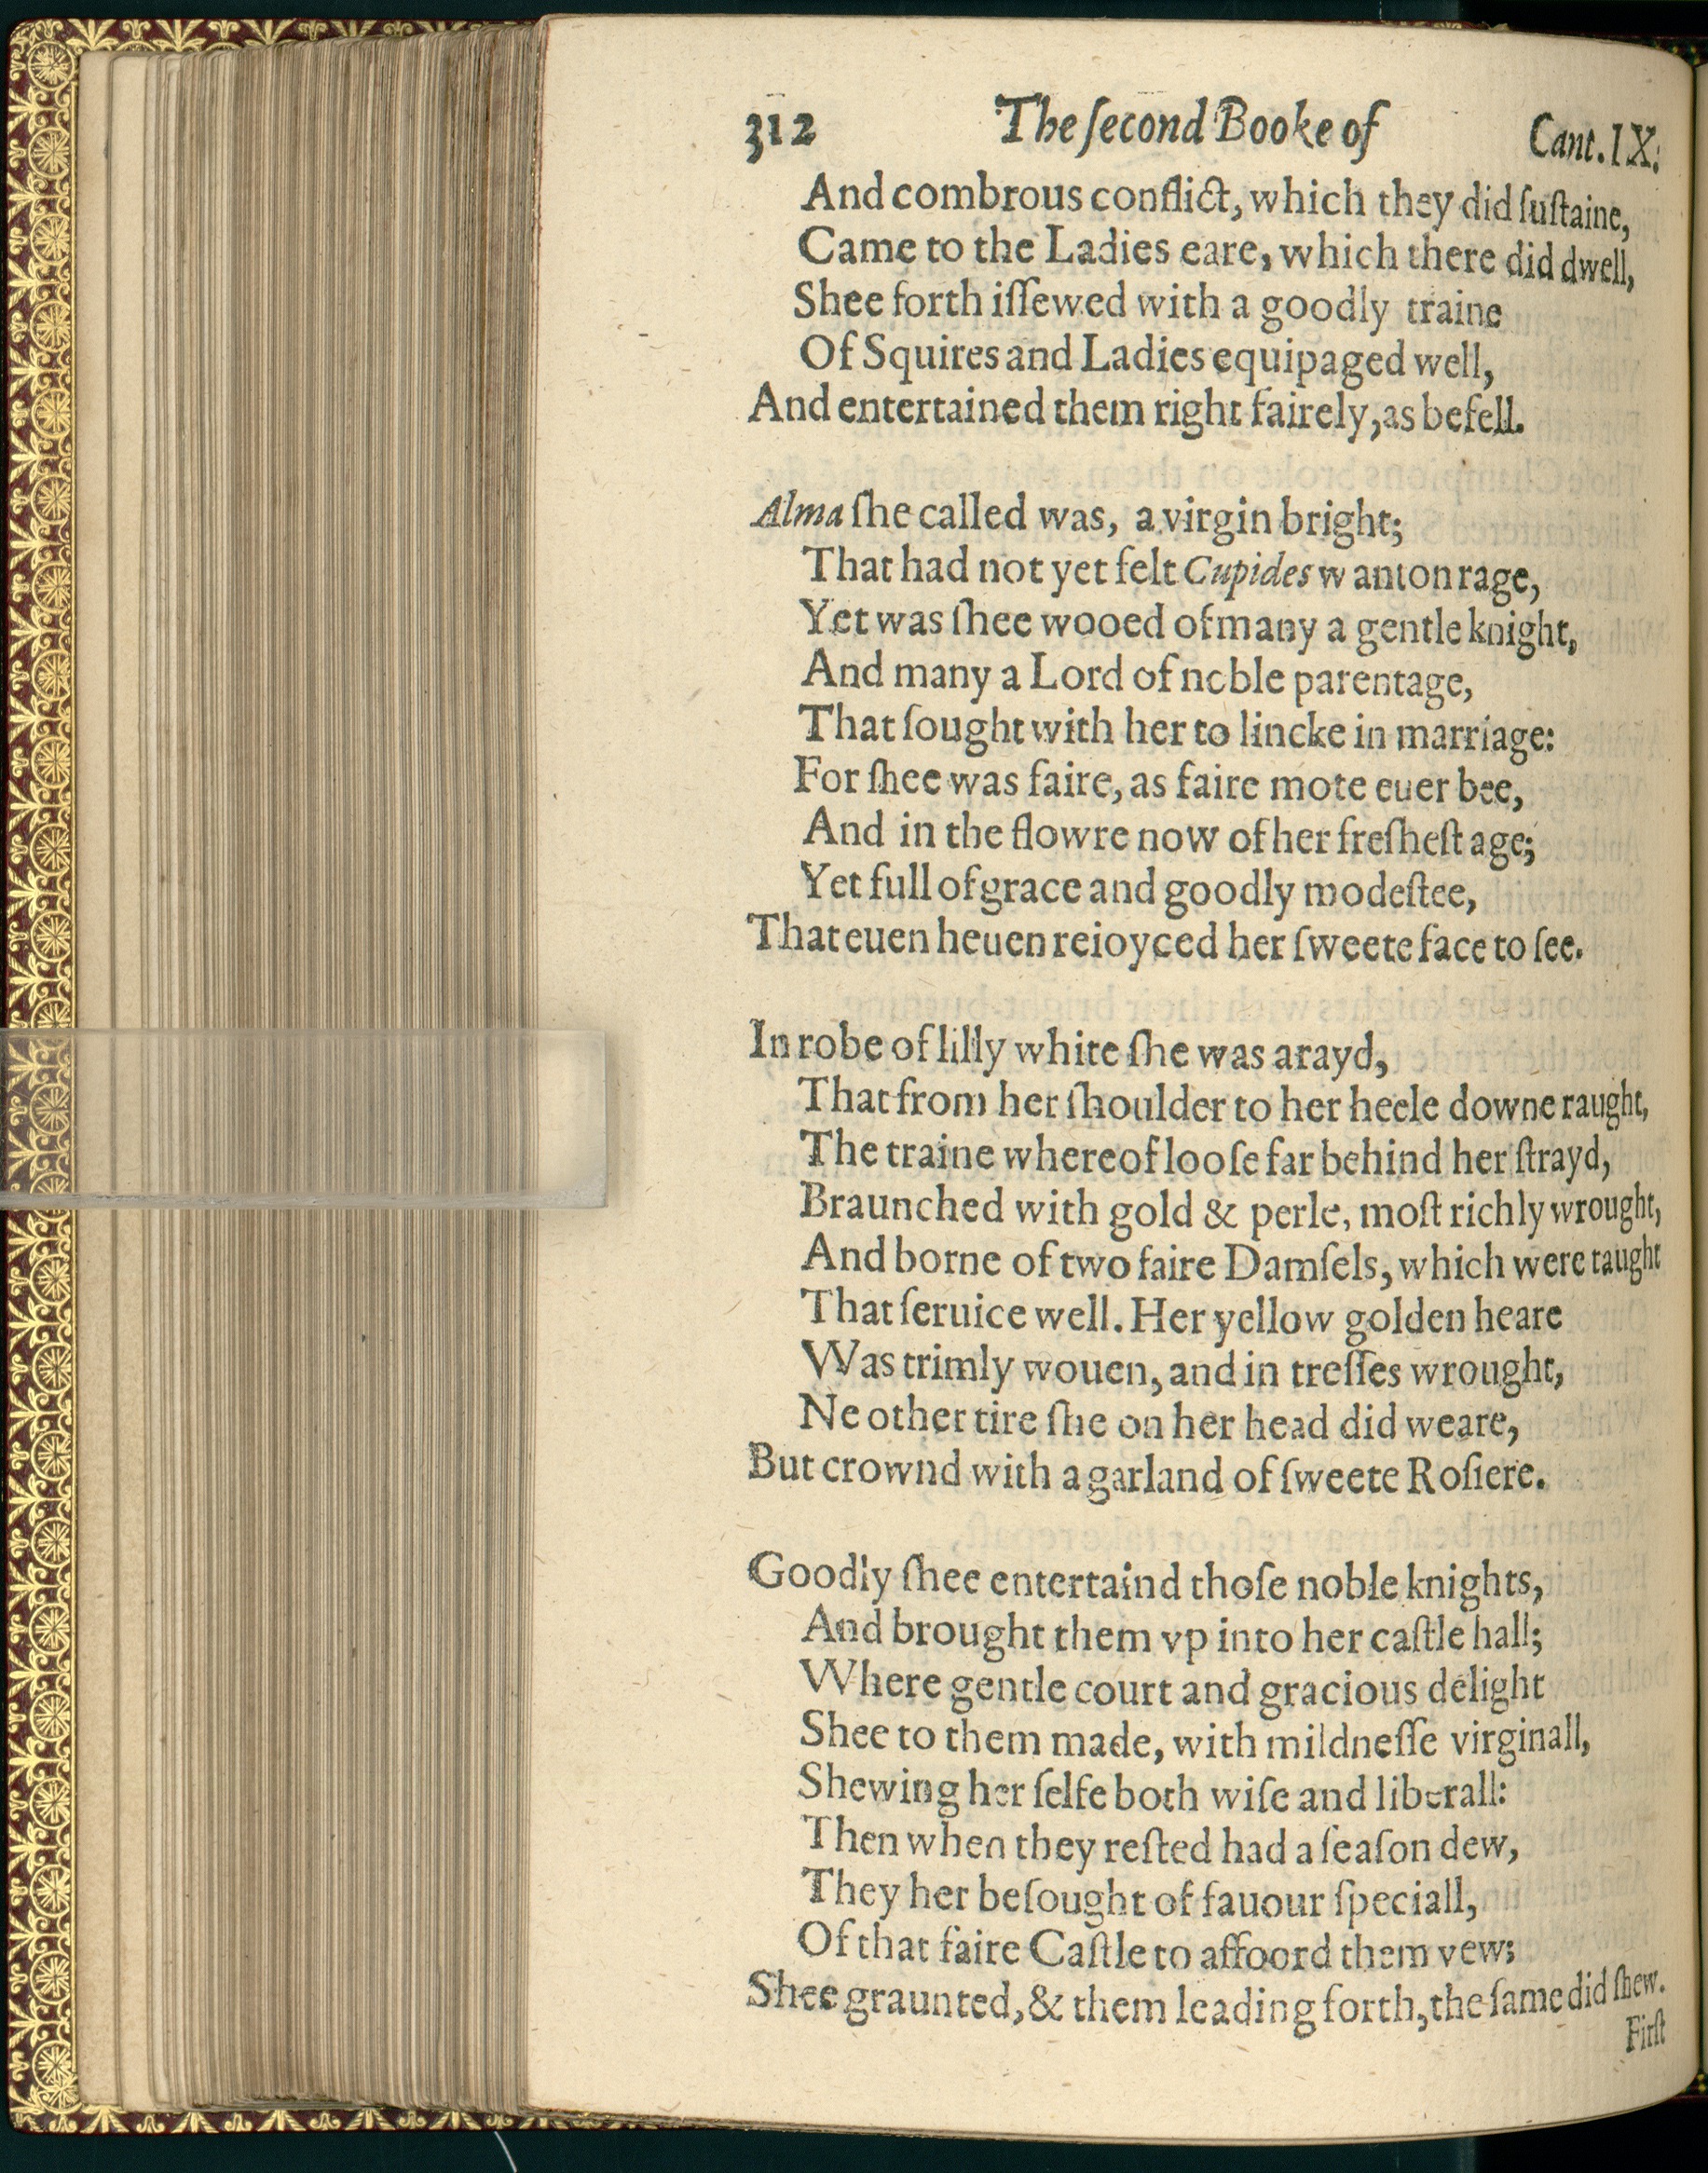 312 The ſecond Booke of Cant. IX.
And combrous conflict, which they did ſuſtaine,
Came to the Ladies eare, which there did dwell,
Shee forth iſſewed with a goodly traine
Of Squires and Ladies equipaged well,
And entertained them right fairely, as befell.
Alma ſhe called was, a virgin bright;
That had not yet felt Cupides wanton rage,
Yet was ſhee wooed of many a gentle knight,
And many a Lord of noble parentage,
That ſought with her to lincke in marriage:
For ſhee was faire, as faire mote euer bee,
And in the flowre now of her freſheſt age;
Yet full of grace and goodly modeſtee,
That euen heuen reioyced her ſweete face to ſee.
In robe of lilly white ſhe was arayd,
That from her ſhoulder to her heele downe raught,
The traine whereof looſe far behind her ſtrayd,
Braunched with gold & perle, moſt richly wrought,
And borne of two faire Damſels, which were taught
That ſeruice well. Her yellow golden heare
Was trimly wouen, and in treſſes wrought,
Ne other tire ſhe on her head did weare,
But crownd with a garland of ſweete Roſiere.
Goodly ſhee entertaind thoſe noble knights,
And brought them vp into her caſtle hall;
Where gentle court and gracious delight
Shee to them made, with mildneſſe virginall,
Shewing her ſelfe both wiſe and liberall:
Then when they reſted had a ſeaſon dew,
They her beſought of fauour ſpeciall,
Of that faire Caſtle to affoord them vew;
Shee graunted, & them leading forth, the ſame did ſhew.
Firſt